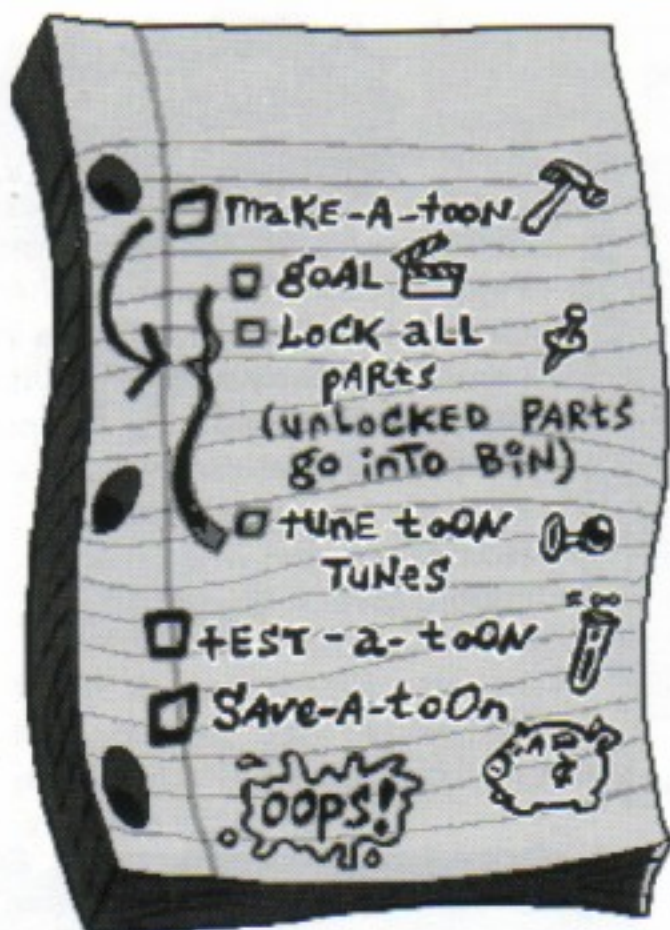 maKE-A-tooN
goAL
LoCK aLL
pARts
(unLoCKED PARts
go inTo BiN)
tUnE tooN
TUNeS
tEST-a-tooN
SAve-A-toOn
OOPS!